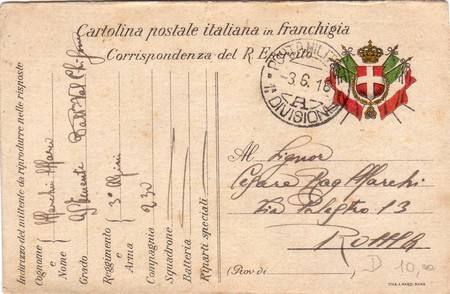 Cartolina postale italiana in franchigia
Corrispondenza del R. Esercito
POSTA MILIT
-3.6.16
A
1ª DIVISIONE
Indirizzo del mittente da riprodurre nelle risposte
Cognome e Nome Marchi Mario
Grado S/Tenente Batt. Val Chisone
Reggimento e Arma 3° Alpini
Compagnia 230
Squadrone
Batteria
Riparti speciali
Al Signor
Cesare Rag Marchi
Via Palestro 13
ROMA
(Prov. di
D 10,00